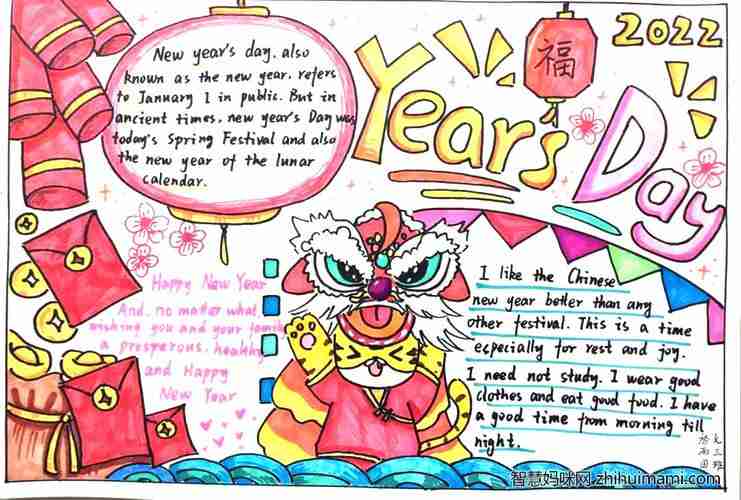 2022
Year's
Day
福
New year's day, also
known as the new year, refers
to January 1 in public. But in
ancient times, new year's Day was
today's Spring Festival and also
the new year of the lunar
calendar.
Happy New Year
And, no matter what,
wishing you and your family
a prosperous, healthy
and Happy
New Year
I like the Chinese
new year better than any
other festival. This is a time
especially for rest and joy.
I need not study. I wear good
clothes and eat good food. I have
a good time from morning till
night.
智慧妈咪网 zhihuimami.com